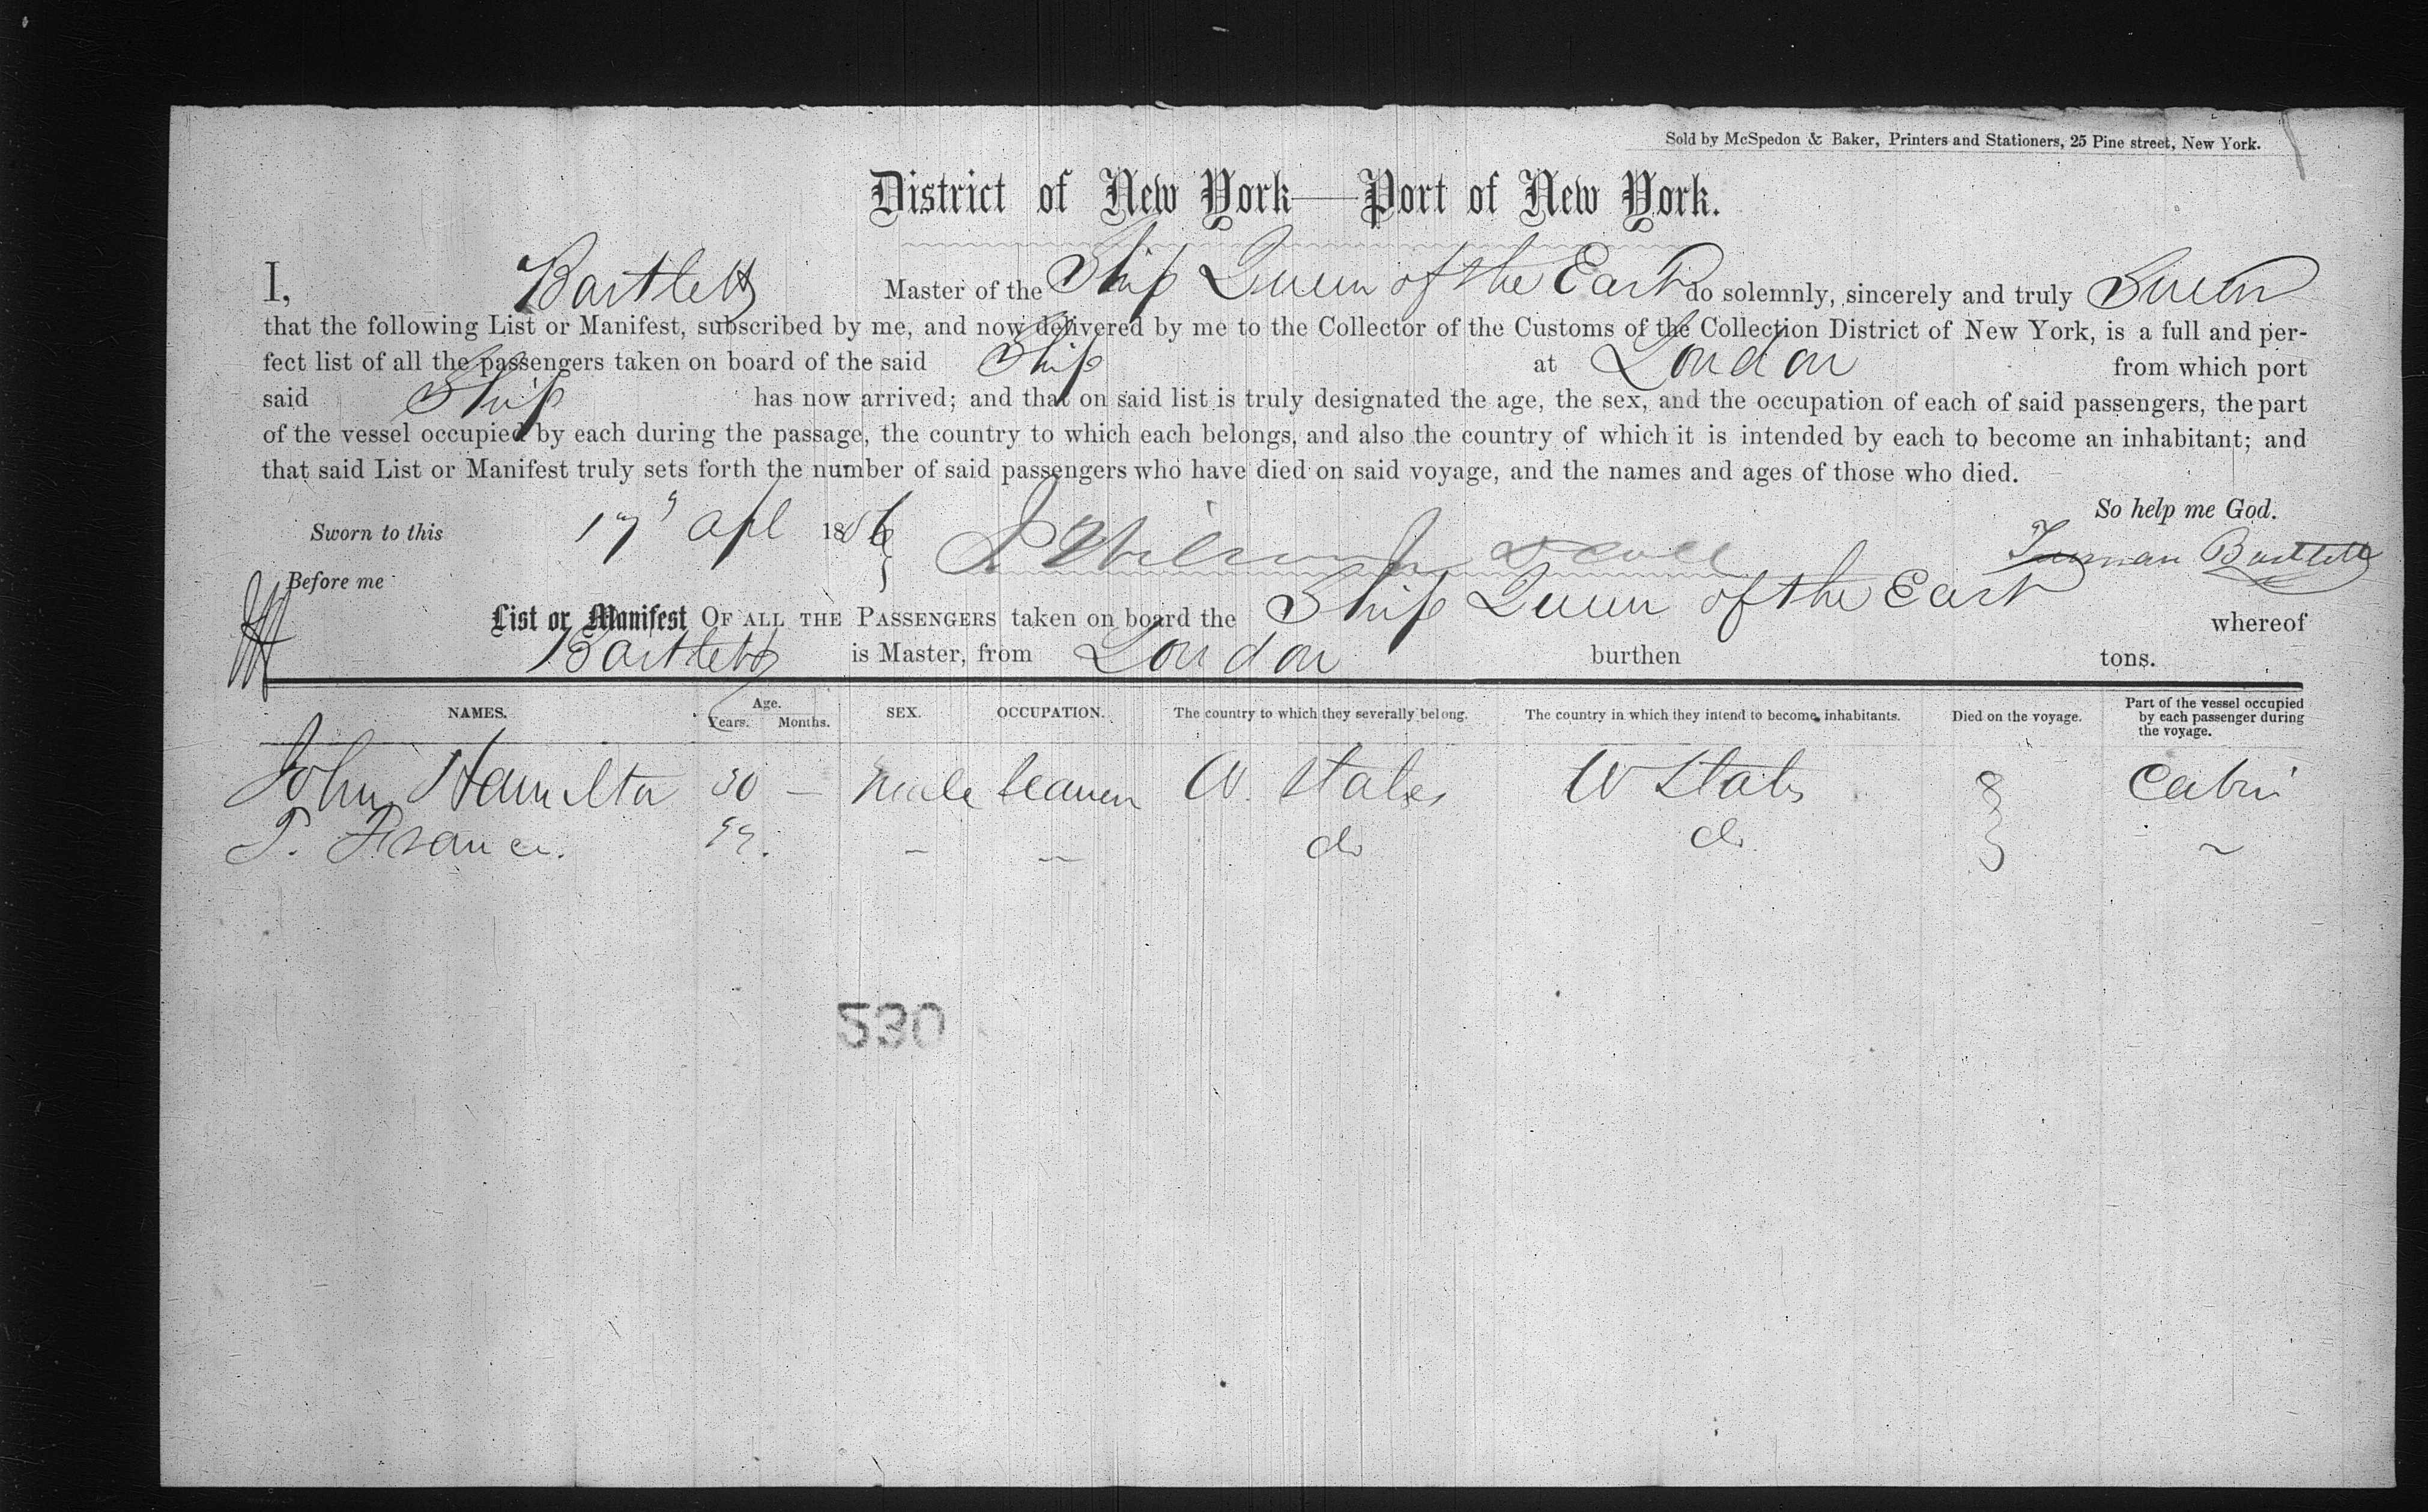 Sold by McSpedon & Baker, Printers and Stationers, 25 Pine street, New York.
District of New York—Port of New York.
I, Bartlett Master of the Ship Queen of the East do solemnly, sincerely and truly Swear
that the following List or Manifest, subscribed by me, and now delivered by me to the Collector of the Customs of the Collection District of New York, is a full and per-
fect list of all the passengers taken on board of the said Ship at London from which port
said Ship has now arrived; and that on said list is truly designated the age, the sex, and the occupation of each of said passengers, the part
of the vessel occupied by each during the passage, the country to which each belongs, and also the country of which it is intended by each to become an inhabitant; and
that said List or Manifest truly sets forth the number of said passengers who have died on said voyage, and the names and ages of those who died.
So help me God.
Sworn to this 17 Apl 1856
Truman Bartlett
Before me
List or Manifest OF ALL THE PASSENGERS taken on board the Ship Queen of the East whereof
Bartlett is Master, from London burthen tons.
NAMES. Age. Years. Months. SEX. OCCUPATION. The country to which they severally belong. The country in which they intend to become inhabitants. Died on the voyage. Part of the vessel occupied by each passenger during the voyage.
John Hamilton 30 — male Seaman U. States U States Cabin
T. France. – — do do ~
230